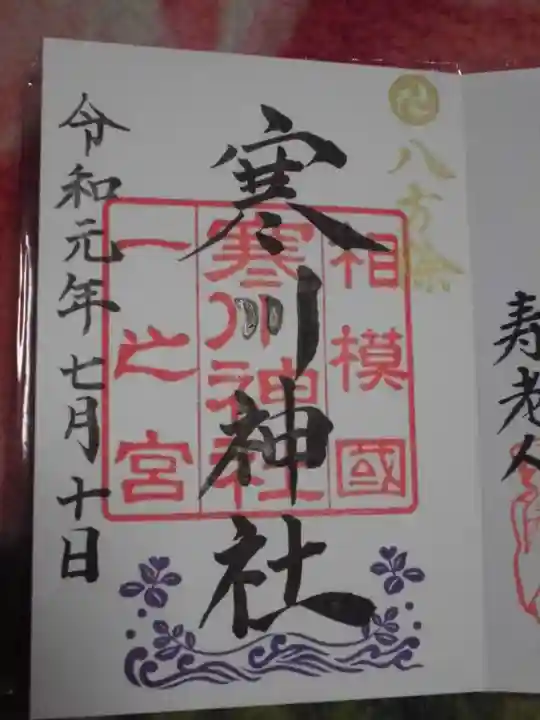 寿老人
卍
八方除
寒川神社
相模國
寒川神社
一之宮
令和元年七月十日